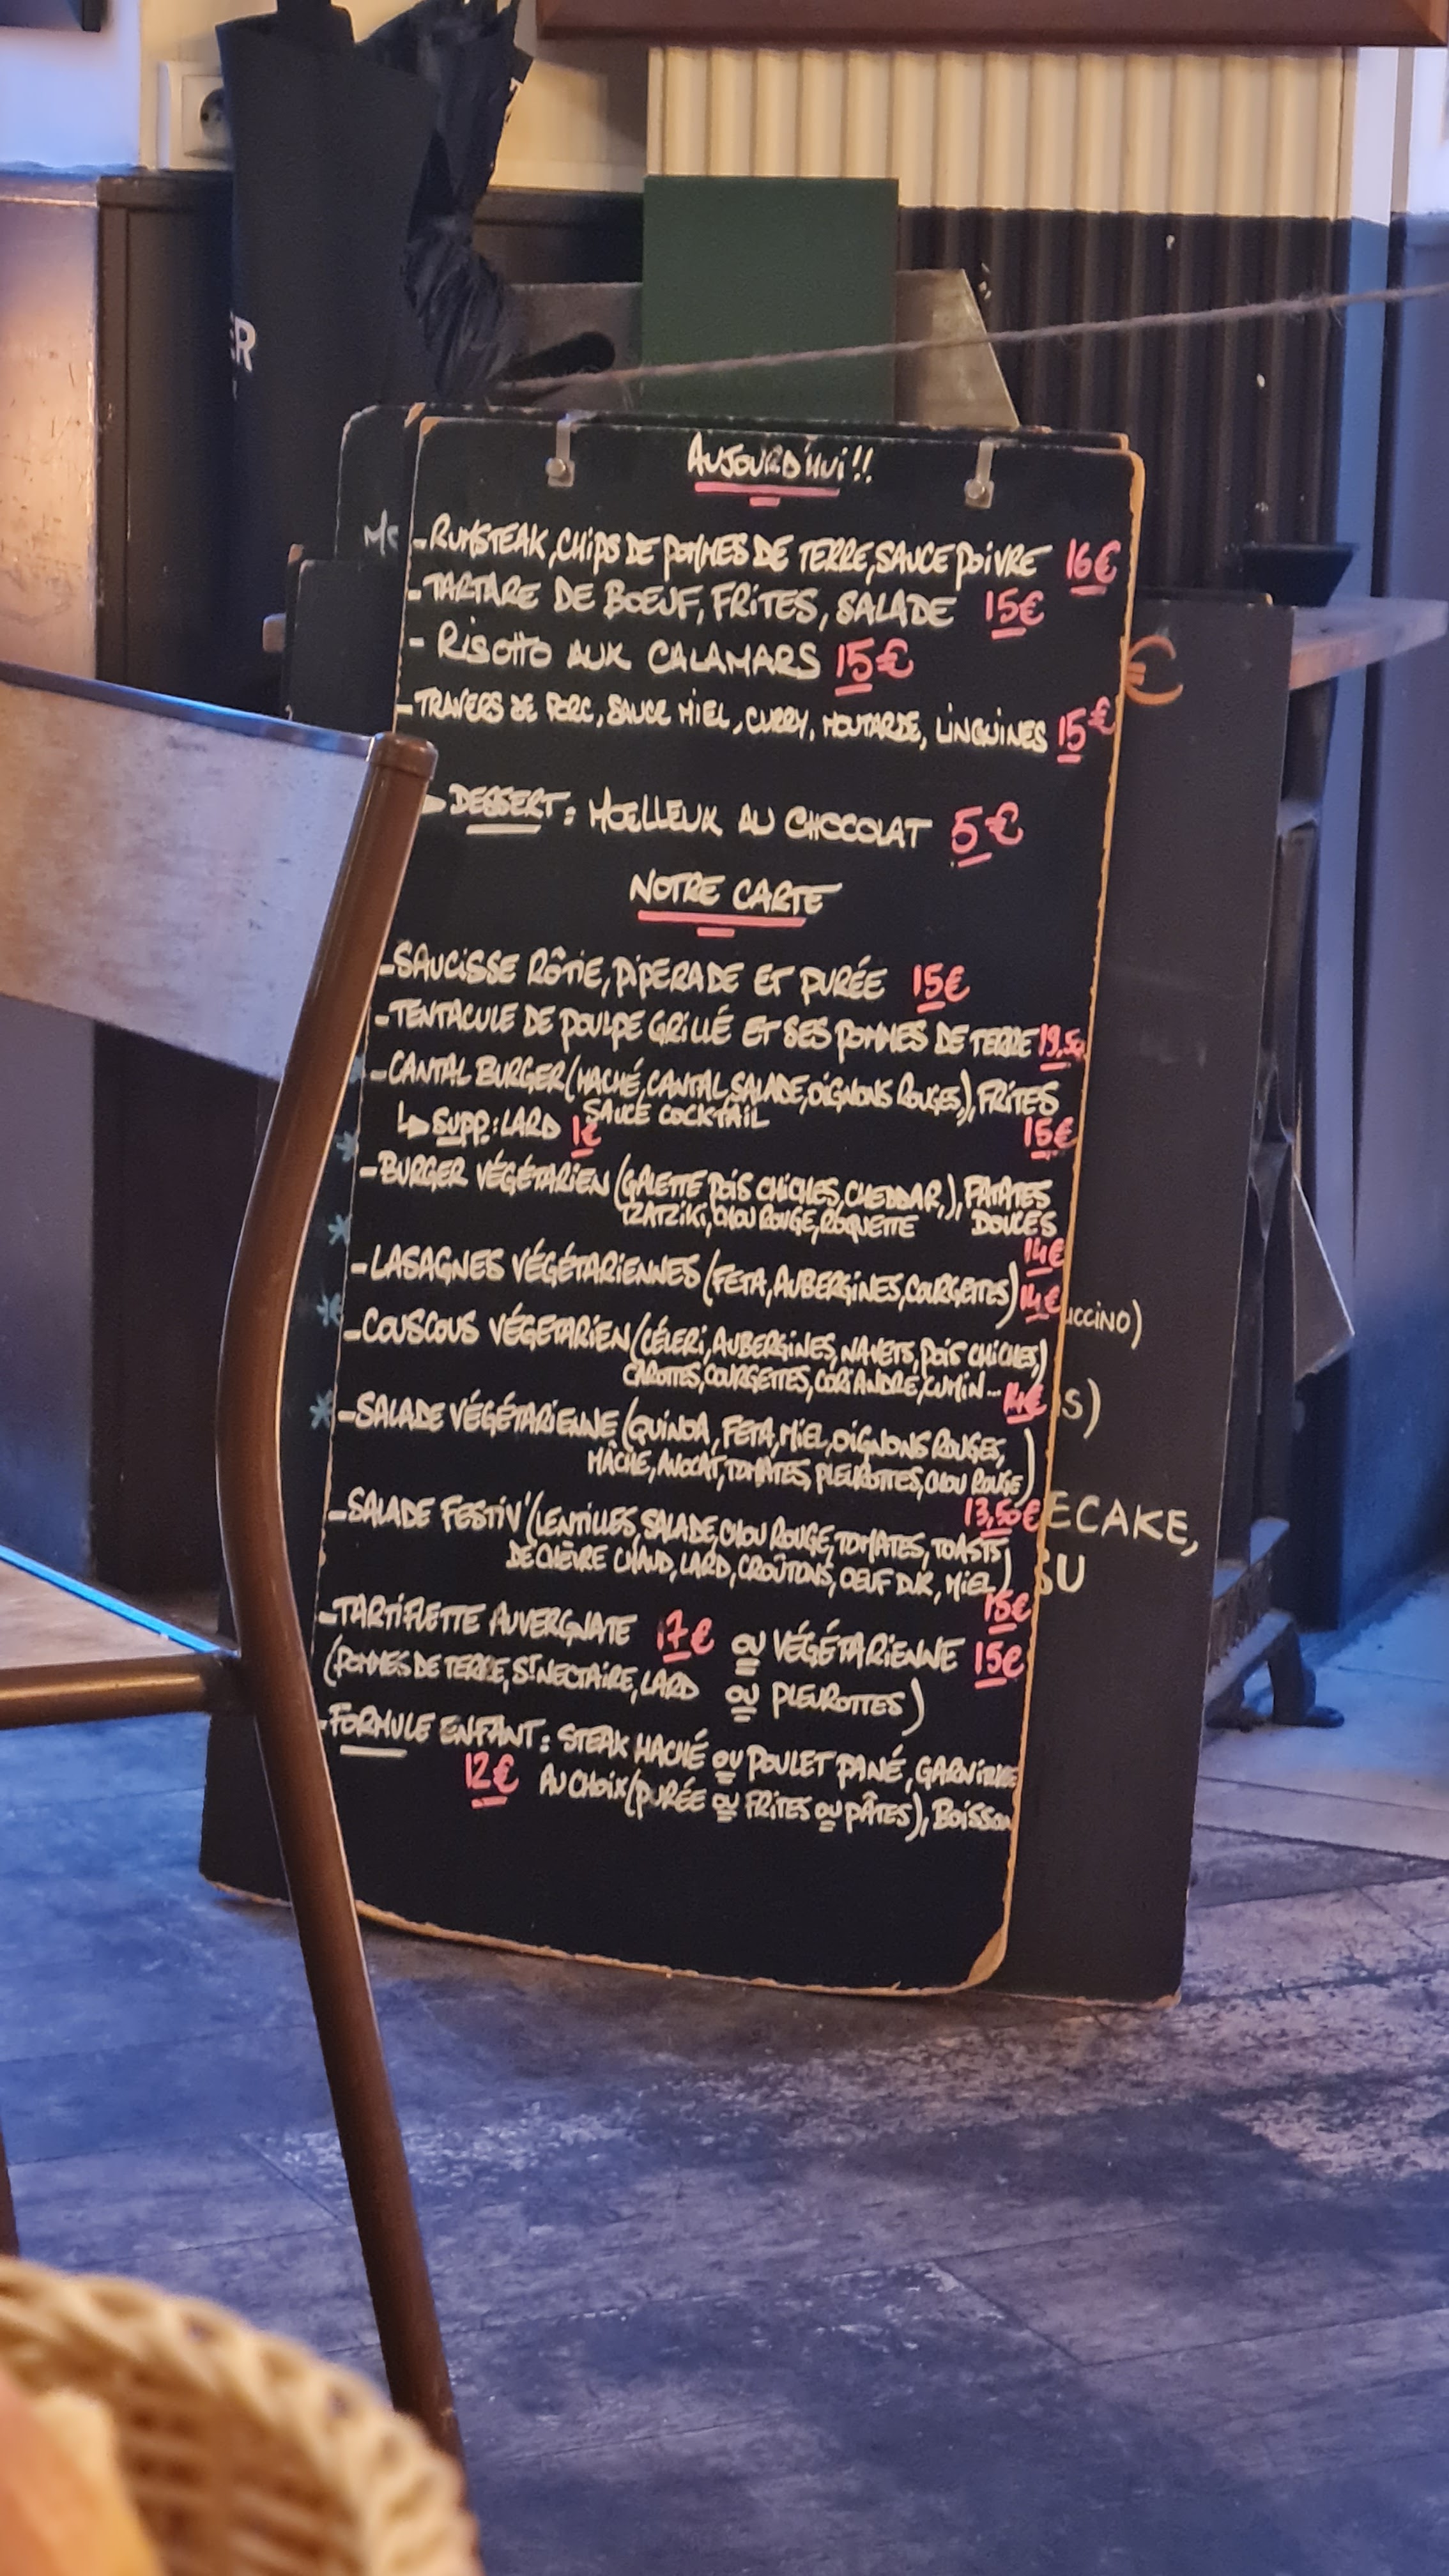 AUJOURD'HUI!!
- RUMSTEAK, CHIPS DE POMMES DE TERRE, SAUCE POIVRE 16€
- TARTARE DE BOEUF, FRITES, SALADE 15€
- RISOTTO AUX CALAMARS 15€
- TRAVERS DE PORC, SAUCE MIEL, CURRY, MOUTARDE, LINGUINES 15€
DESSERT: MOELLEUX AU CHOCOLAT 5€
NOTRE CARTE
- SAUCISSE RÔTIE, PIPERADE ET PURÉE 15€
- TENTACULE DE POULPE GRILLÉ ET SES POMMES DE TERRE 19,50
- CANTAL BURGER (HACHÉ, CANTAL, SALADE, OIGNONS ROUGES), FRITES
SAUCE COCKTAIL
↳ SUPP: LARD 1€ 15€
- BURGER VÉGÉTARIEN (GALETTE POIS CHICHES, CHEDDAR,), PATATES
TZATZIKI, CHOU ROUGE, ROQUETTE DOUCES
14€
- LASAGNES VÉGÉTARIENNES (FETA, AUBERGINES, COURGETTES) 14€
- COUSCOUS VÉGÉTARIEN (CÉLERI, AUBERGINES, NAVETS, POIS CHICHES,)
CAROTTES, COURGETTES, CORIANDRE, CUMIN... 14€
- SALADE VÉGÉTARIENNE (QUINOA, FETA, MIEL, OIGNONS ROUGES,
MÂCHE, AVOCAT, TOMATES, PLEUROTTES, CHOU ROUGE)
13,50€
- SALADE FESTIV' (LENTILLES, SALADE, CHOU ROUGE, TOMATES, TOASTS
DE CHÈVRE CHAUD, LARD, CROÛTONS, OEUF DUR, MIEL)
15€
- TARTIFLETTE AUVERGNATE 17€ OU VÉGÉTARIENNE 15€
(POMMES DE TERRE, ST NECTAIRE, LARD OU PLEUROTTES)
- FORMULE ENFANT: STEAK HACHÉ OU POULET PANÉ, GARNITURE
12€ AU CHOIX (PURÉE OU FRITES OU PÂTES), BOISSON
€
UCCINO)
S)
ECAKE,
SU
ER